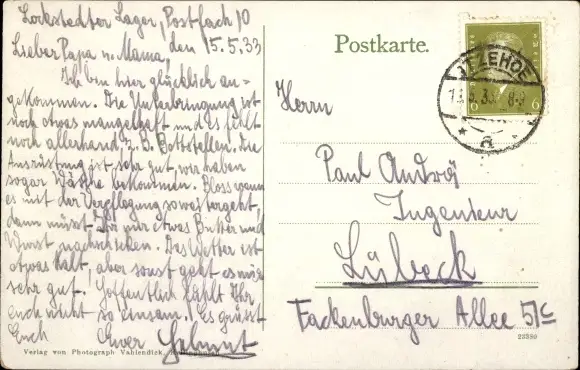 Lockstedter Lager, Postfach 10
Lieber Papa u. Mama, den 15.5.33
Ich bin hier glücklich an=
gekommen. Die Unterbringung ist
noch etwas mangelhaft und es fehlt
noch allerhand z. B. Bettstellen. Die
Ausrüstung ist sehr gut, wir haben
sogar Wäsche bekommen. Bloss wenn
es mit der Verpflegung so weitergeht,
dann müsst Ihr mir etwas Butter und
Wurst nachschicken. Das Wetter ist
etwas kalt, aber sonst geht es mir
sehr gut. Hoffentlich fühlt Ihr
euch nicht so einsam! Es grüsst
Euch Euer Helmut
Verlag von Photograph Vahlendick,
Postkarte.
ITZEHOE
8-9
a
6
6
Herrn
Paul Andrä
Ingenieur
Lübeck
Fackenburger Allee 51c